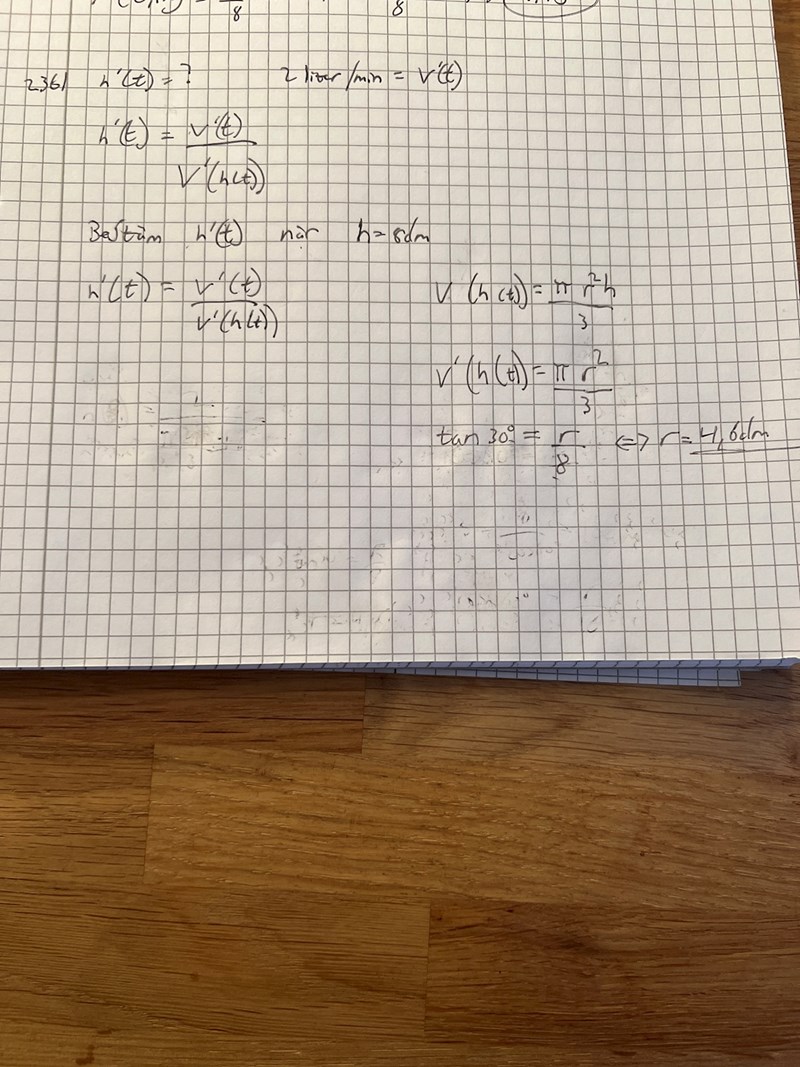 8
8
2361 h'(t) = ? 2 liter/min = V'(t)
h'(t) = V'(t) / V'(h(t))
Bestäm h'(t) när h = 8dm
h'(t) = V'(t) / V'(h(t))
V (h(t)) = π r²h / 3
V'(h(t)) = π r² / 3
tan 30° = r / 8 <=> r = 4,6dm